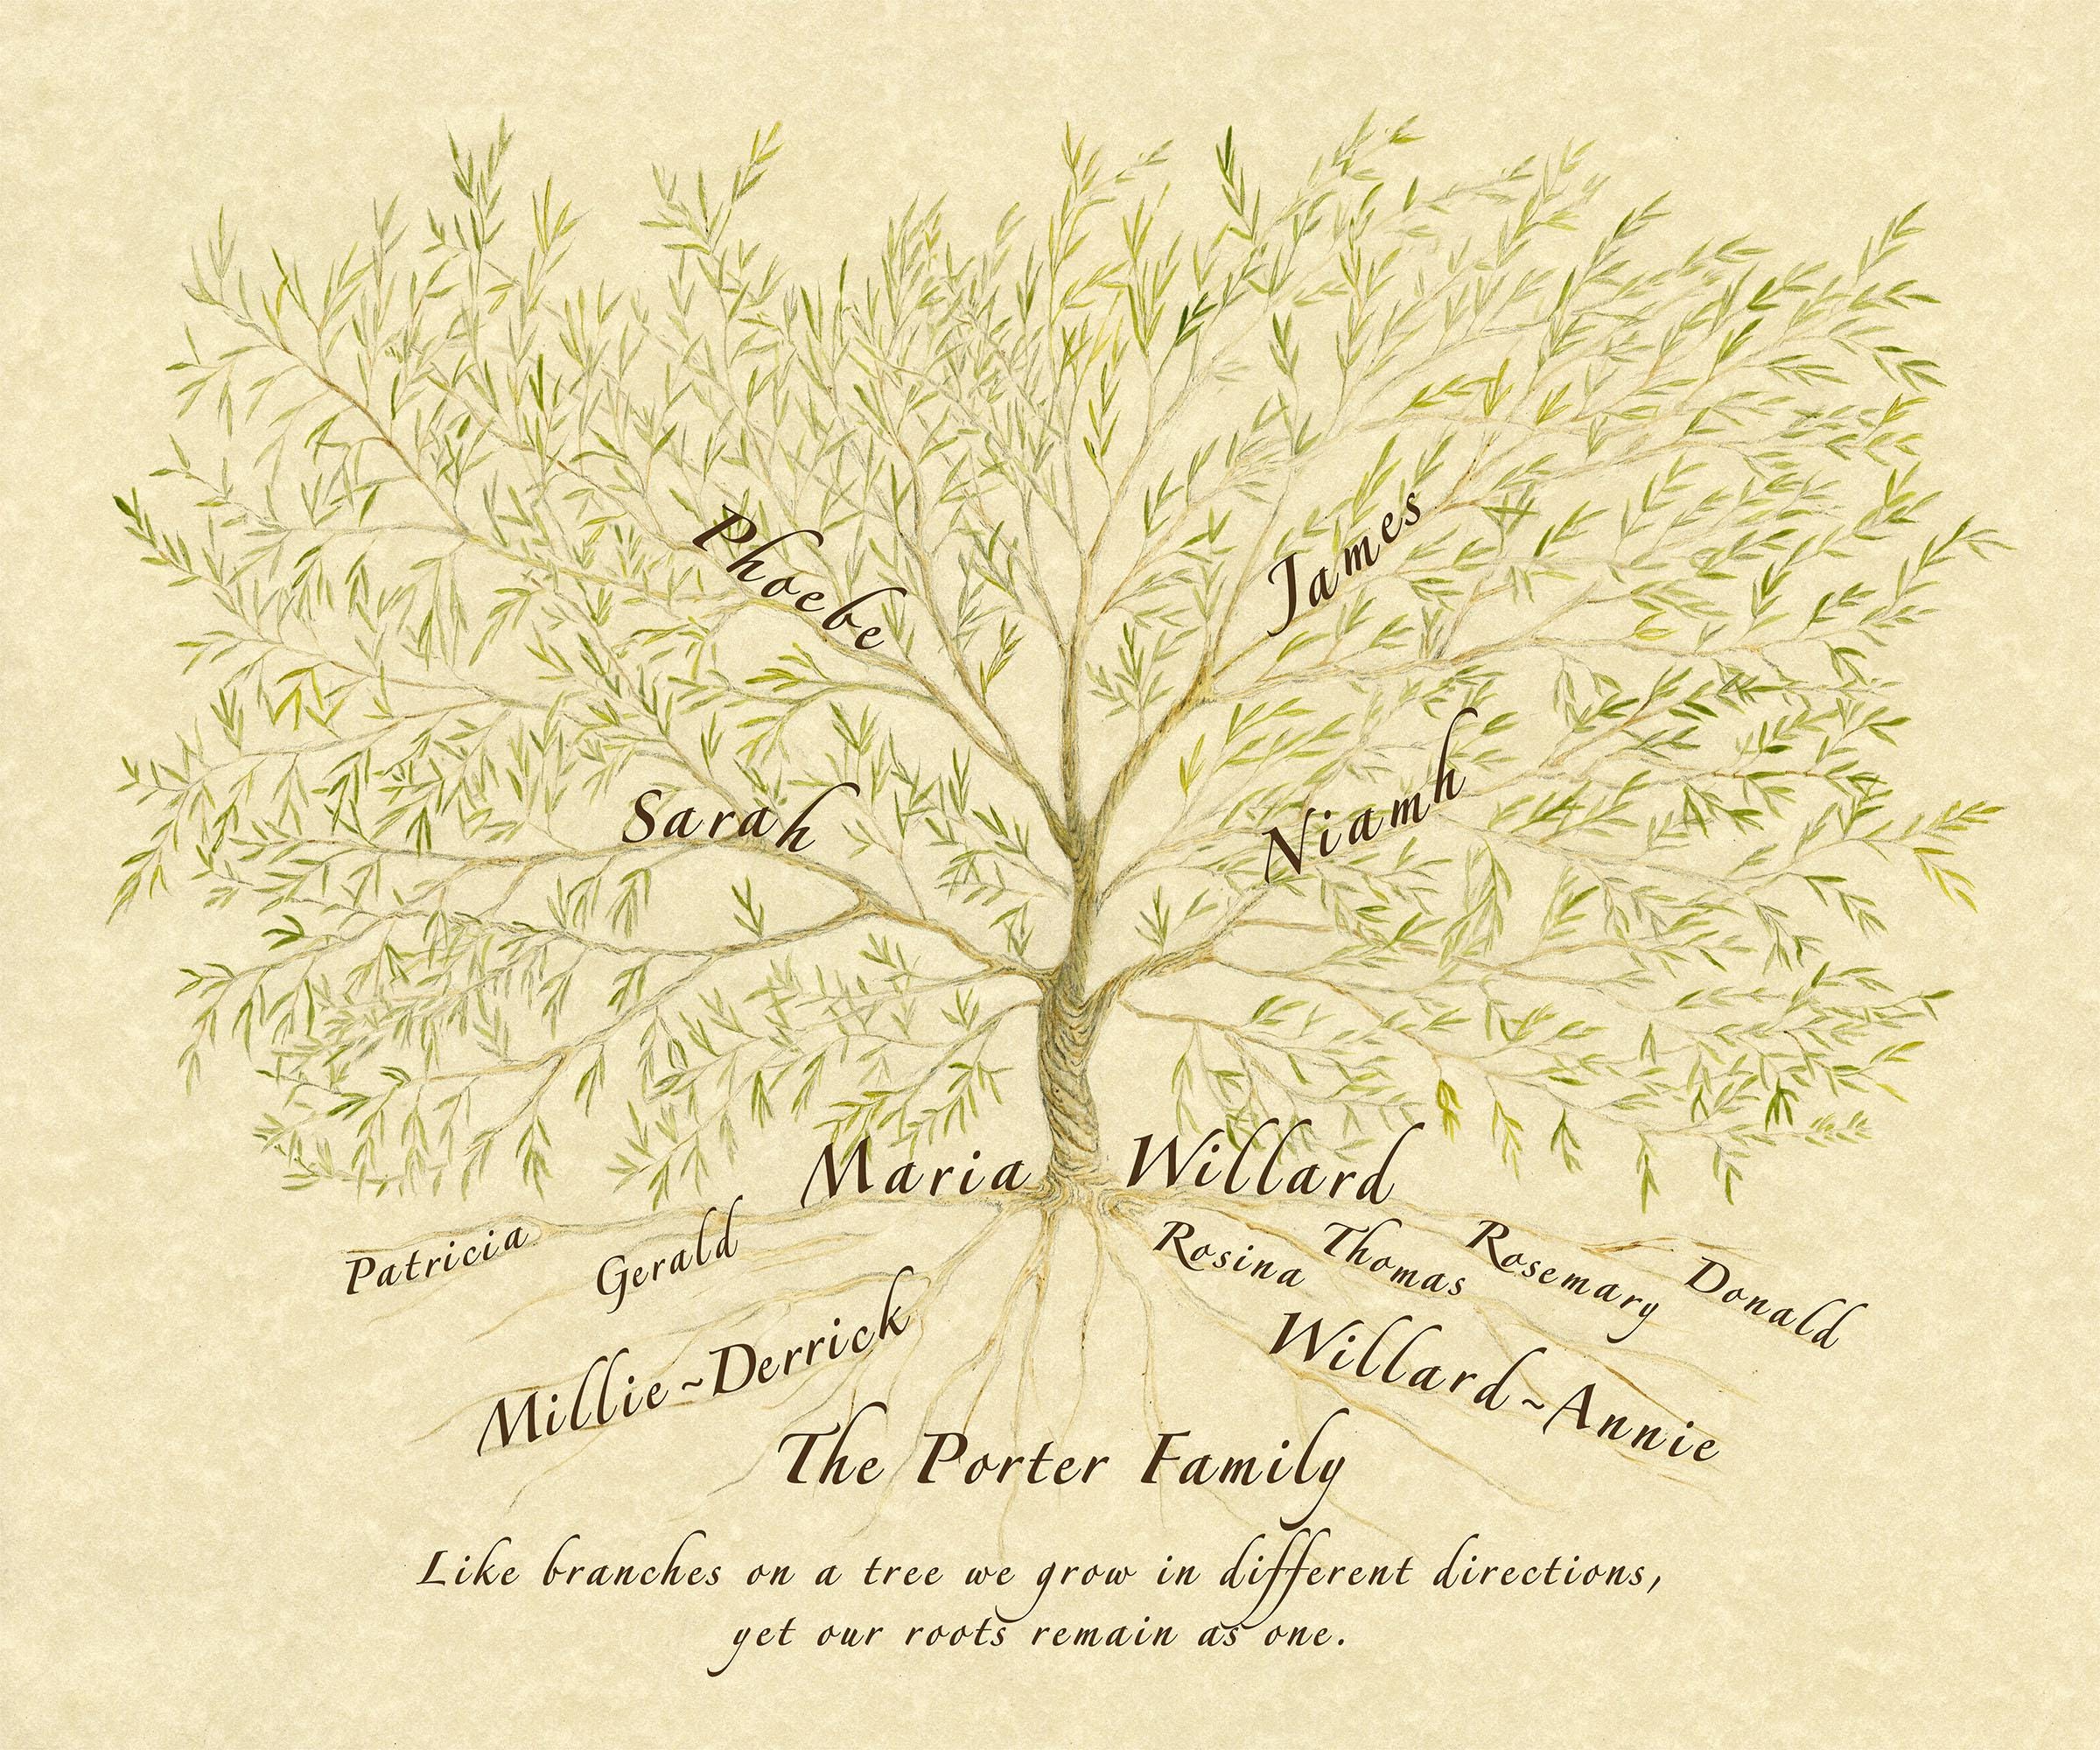 Phoebe
James
Sarah
Niamh
Maria Willard
Patricia Gerald Rosina Thomas Rosemary Donald
Millie~Derrick Willard~Annie
The Porter Family
Like branches on a tree we grow in different directions,
yet our roots remain as one.